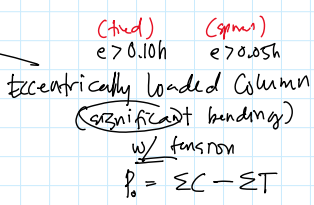 (tied) (spiral)
e > 0.10h e > 0.05h
Eccentrically loaded Column
(significant bending)
w/ tension
P₀ = ΣC − ΣT